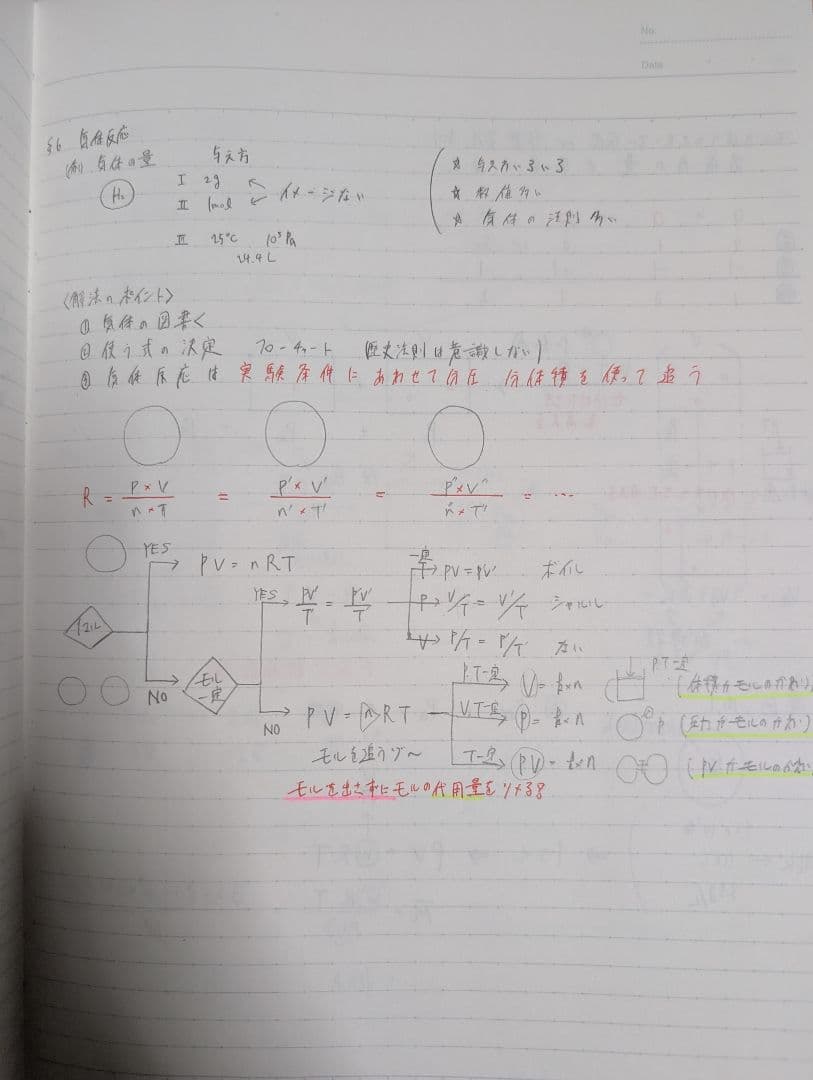 No.
Date
§6 気体反応
(例) 気体の量 与え方
H₂ I 2g イメージない
II 1mol
III 25℃ 10⁵Pa
24.4L
☆ 与え方いろいろ
☆ 数値多い
☆ 気体の法則多い
〈解法のポイント〉
① 気体の図書く
② 使う式の決定 フローチャート (歴史法則は意識しない)
③ 気体反応は実験条件にあわせて分圧 分体積を使って追う
R = P×V / n×T = P'×V' / n'×T' = P''×V'' / n''×T'' = …
YES PV = nRT
YES PV/T = P'V'/T'
一定
T PV = P'V' ボイル
P V/T = V'/T' シャルル
V P/T = P'/T' ない
1コル
NO モル一定
NO PV = nRT
P.T一定 V = k×n P.T一定 (体積がモルのかわり)
V.T一定 P = k×n P (圧力がモルのかわり)
T一定 PV = k×n (PVがモルのかわり
モルを追うゾ〜
モルを出さずにモルの代用量を